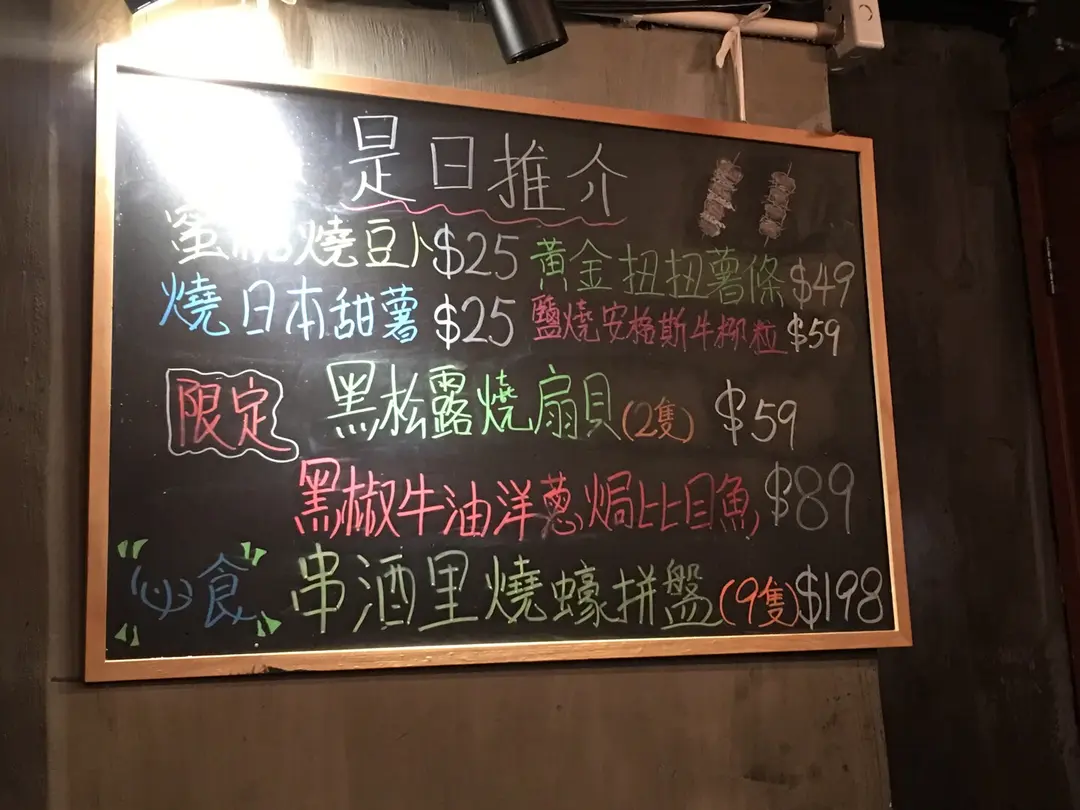 是日推介
蜜 燒豆卜 $25 黃金扭扭薯條 $49
燒日本甜薯 $25 鹽燒安格斯牛柳粒 $59
限定 黑松露燒扇貝(2隻) $59
黑椒牛油洋蔥焗比目魚 $89
必食 串酒里燒蠔拼盤(9隻) $198